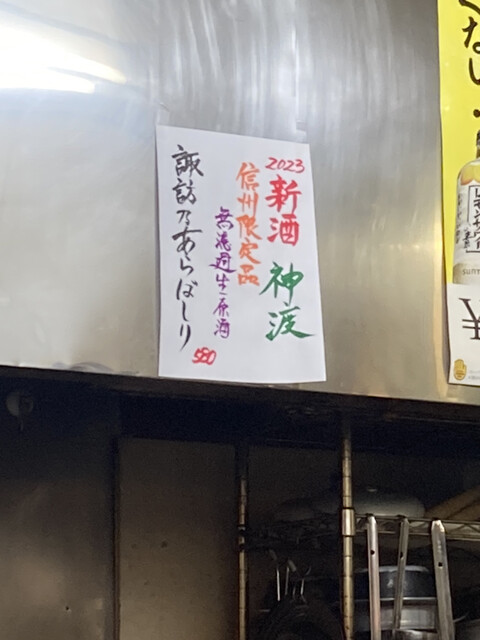 2023
新酒 神渡
信州限定品
無濾過生原酒
諏訪乃あらばしり
580
くない
SUNTORY